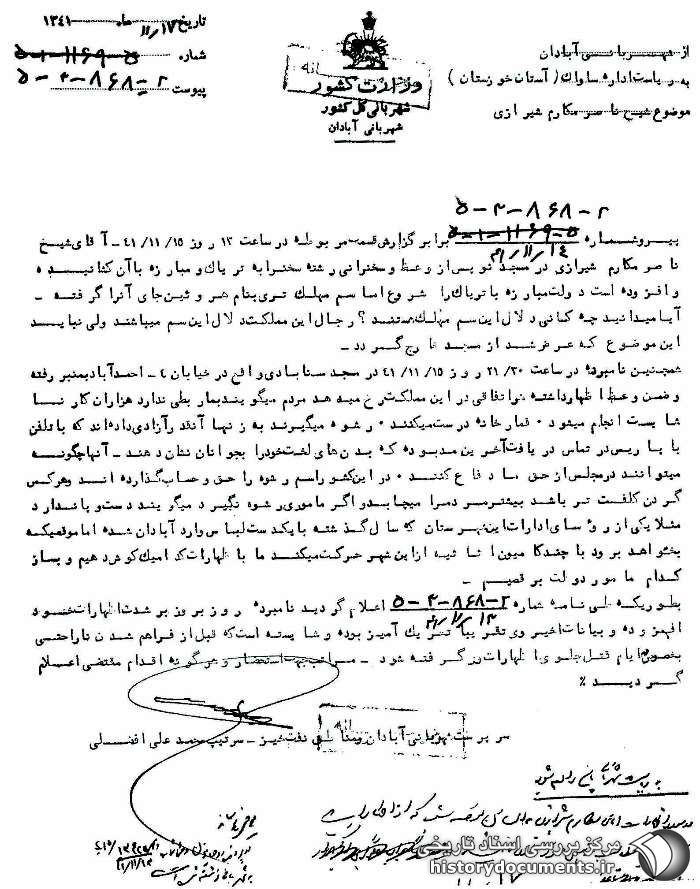 تاریخ ۱۱/۱۷ ماه ۱۳۴۱
شماره
پیوست ۵-۳-۸۶۸-۲
وزارت کشور
شهربانی کل کشور
شهربانی آبادان
از شهربانی آبادان
به ریاست اداره ساواک (استان خوزستان)
موضوع شیخ ناصر مکارم شیرازی
۵-۳-۸۶۸-۲
پیرو شماره برابر گزارش قسمت مربوطه در ساعت ۱۲ روز ۴۱/۱۱/۱۵ ـ آقای شیخ
ناصر مکارم شیرازی در مسجد نو پس از وعظ و سخنرانی رشته سخنرا به تریاك و مبارزه با آن کشانیده
و افزوده است دولت مبارزه با تریاك را شروع اما سم مهلك تری بنام هروئین جای آنرا گرفته ـ
آیا میدانید چه کسانی دلال این سم مهلك هستند ؟ رجال این مملکت دلال این سم میباشند ولی نباید
این موضوع که عرض شد از مسجد خارج گردد ـ
همچنین نامبرده در ساعت ۲۱/۳۰ روز ۴۱/۱۱/۱۵ در مسجد سنابادی واقع در خیابان ۴ ـ احمدآباد بمنبر رفته
و ضمن وعظ اظهار داشته هر اتفاقی در این مملکت رخ میدهد مردم میگویند بما ربطی ندارد هزاران کار نا
شایست انجام میشود ۰ قمارخانه درست میکنند ۰ رشوه میگیرند به زنها آنقدر آزادی داده اند که با تلفن
با پاریس در تماس دریافت آخرین مد بوده که بدن های لخت خود را بجوانان نشان دهند ـ آنها چگونه
میتوانند در مجلس از حق ما دفاع کنند ۰ در این کشور اسم رشوه را حق و حساب گذارده اند و هر کس
گردن کلفت تر باشد بیشتر مردم را میچاپد و اگر ماموری رشوه نگیرد میگویند دست و پا ندارد
مثلا یکی از روسای ادارات این شهرستان که سال گذشته با یکدست لباس وارد آبادان شده اما موقعیکه
بخواهد برود با چند کامیون اثاثیه از این شهر حرکت میکند ما با اظهارات کدامیك گوش دهیم و بساز
کدام مامور دولت برقصیم ـ
بطوریکه طی نامه شماره ۵-۳-۸۶۸-۲ اعلام گردید نامبرده روز بروز بر شدت اظهارات خود
افزوده و بیانات اخیر وی تقریبا تحریك آمیز بوده و شایسته است که قبل از فراهم شدن ناراحتی
بخصوص ایام قتل جلوی اظهاراتش گرفته شود ـ مراتب جهت استحضار و هرگونه اقدام مقتضی اعلام
گردید ٪
سرپرست شهربانی آبادان و مناطق نفت خیز ـ سرتیپ محمد علی افضلی
مرکز بررسی اسناد تاریخی
historydocuments.ir